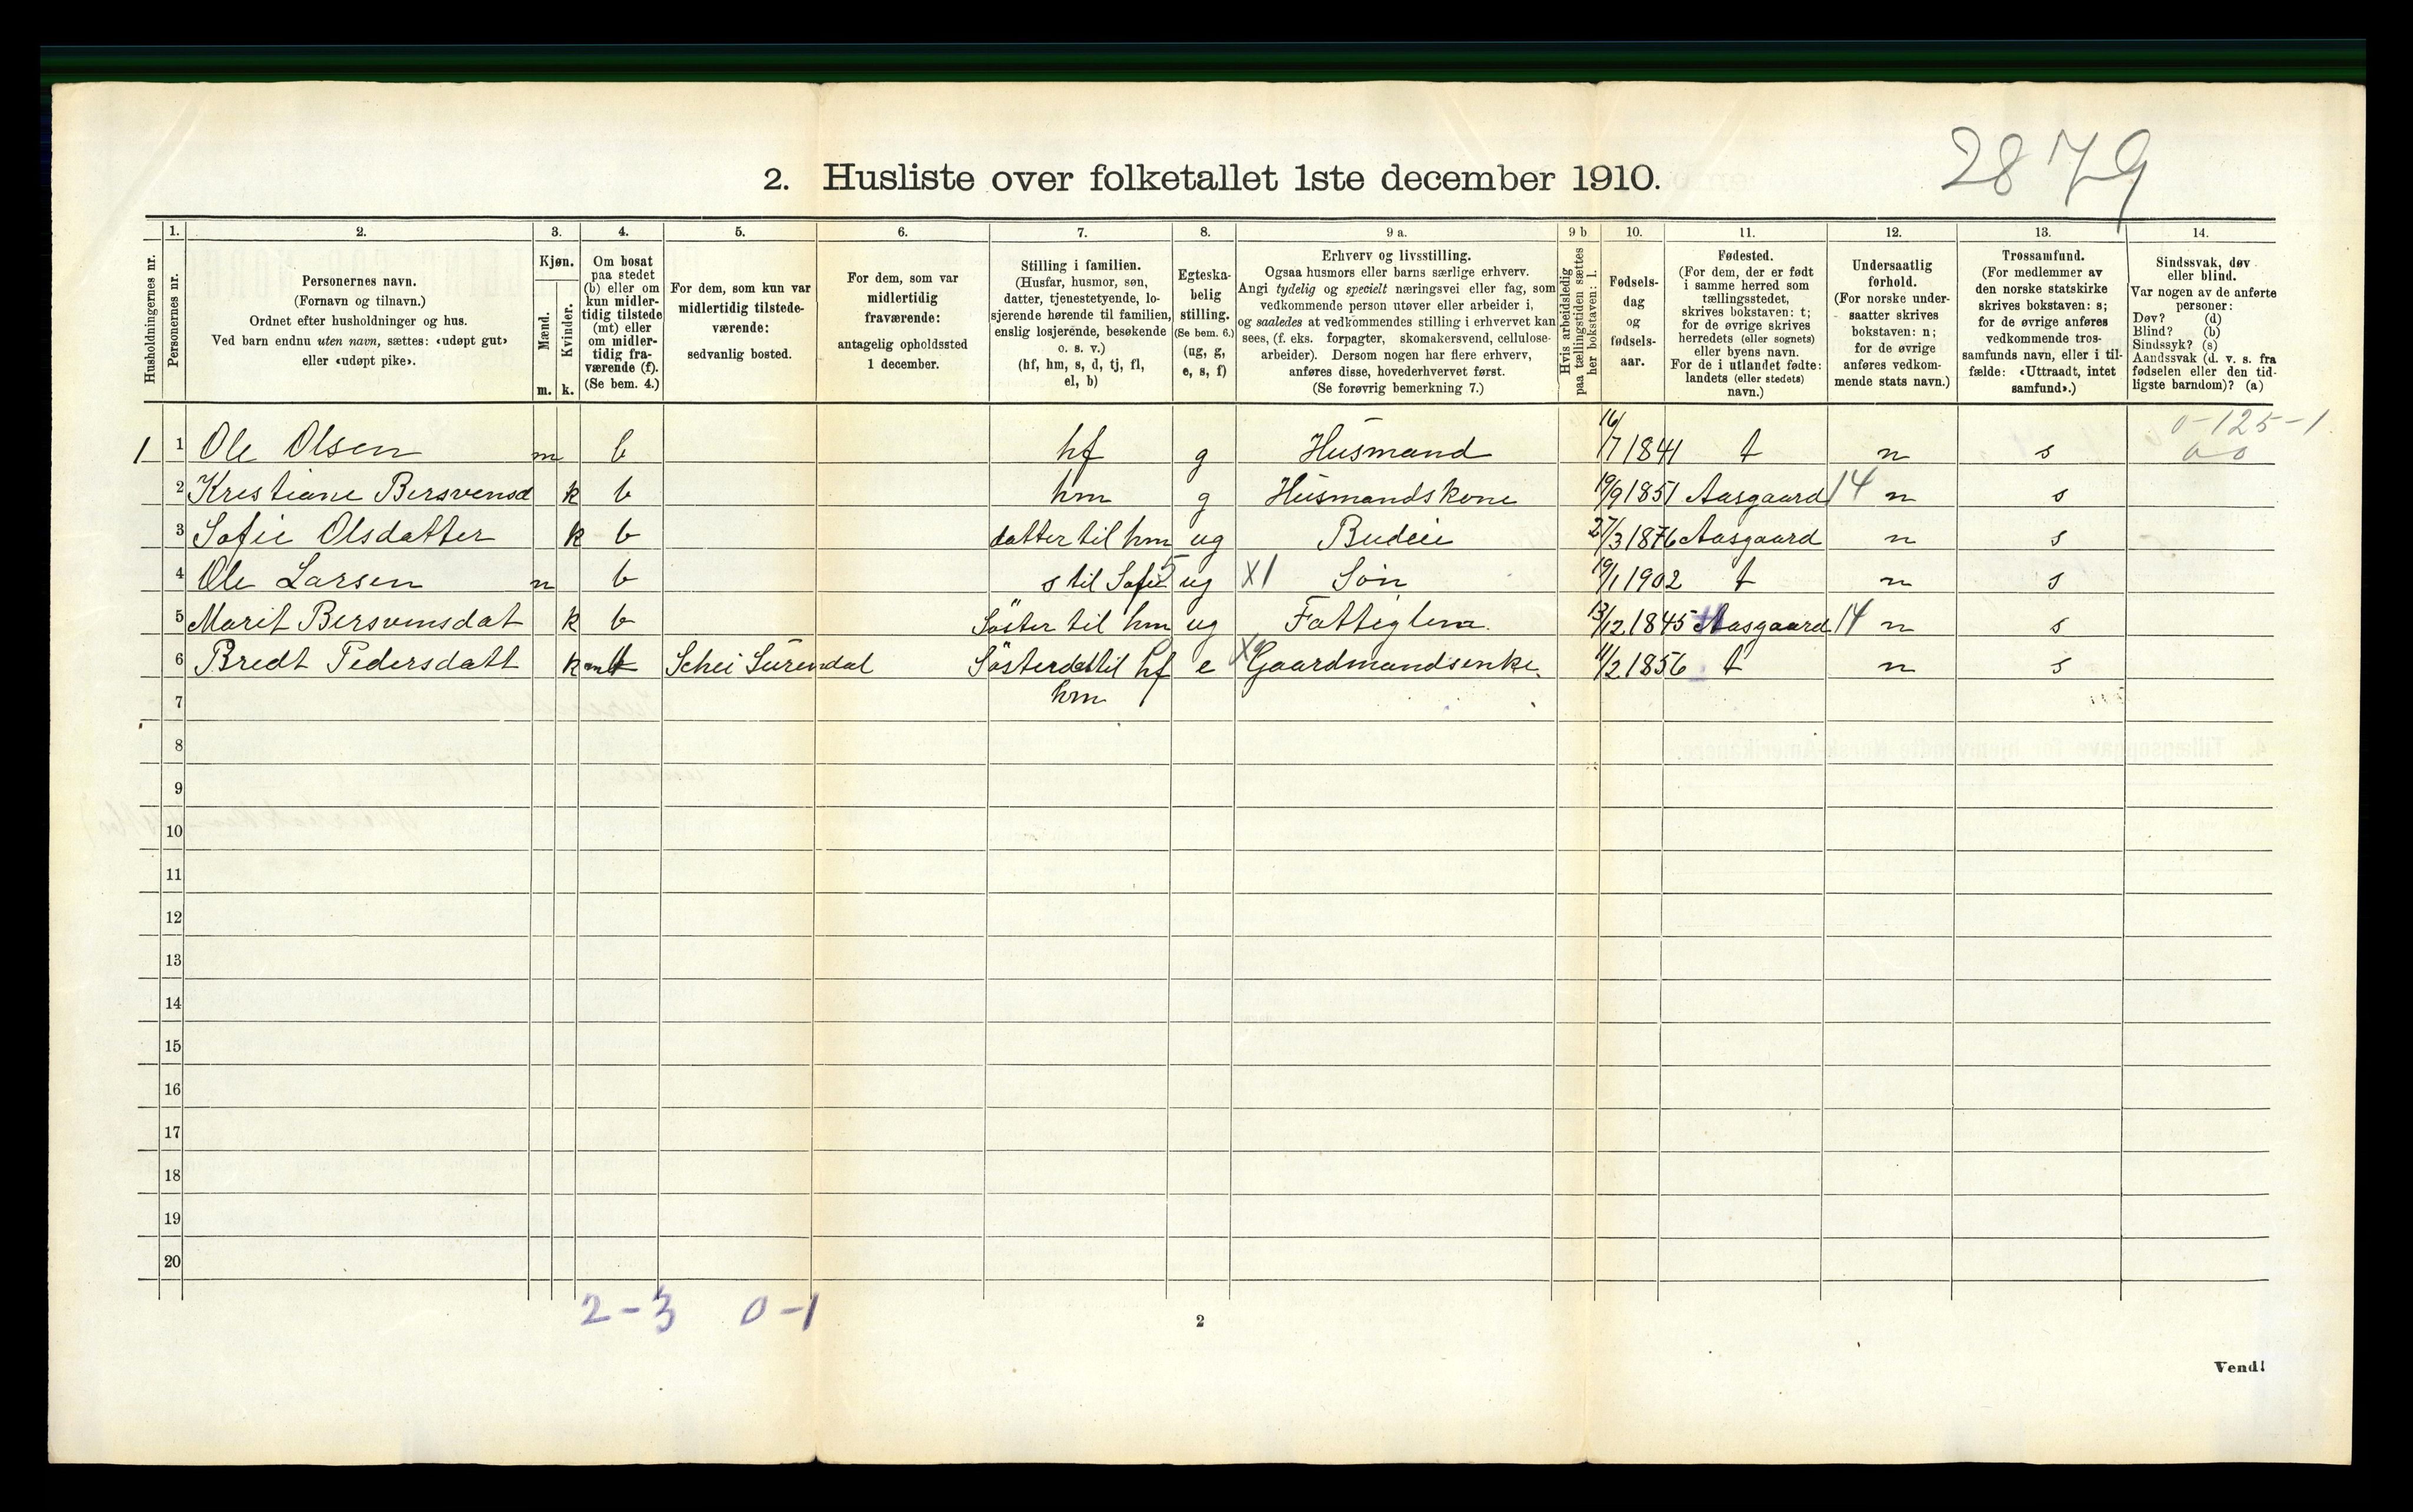 2879
2. Husliste over folketallet 1ste december 1910.
Husholdningernes nr.
1.
Personernes nr.
2.
Personernes navn.
(Fornavn og tilnavn.)
Ordnet efter husholdninger og hus.
Ved barn endnu uten navn, sættes: «udøpt gut»
eller «udøpt pike».
3.
Kjøn.
Mænd.
m.
Kvinder.
k.
4.
Om bosat
paa stedet
(b) eller om
kun midler-
tidig tilstede
(mt) eller
om midler-
tidig fra-
værende (f).
(Se bem. 4.)
5.
For dem, som kun var
midlertidig tilstede-
værende:
sedvanlig bosted.
6.
For dem, som var
midlertidig
fraværende:
antagelig opholdssted
1 december.
7.
Stilling i familien.
(Husfar, husmor, søn,
datter, tjenestetyende, lo-
sjerende hørende til familien,
enslig losjerende, besøkende
o. s. v.)
(hf, hm, s, d, tj, fl,
el, b)
8.
Egteska-
belig
stilling.
(Se bem. 6.)
(ug, g,
e, s, f)
9 a.
Erhverv og livsstilling.
Ogsaa husmors eller barns særlige erhverv.
Angi tydelig og specielt næringsvei eller fag, som
vedkommende person utøver eller arbeider i,
og saaledes at vedkommendes stilling i erhvervet kan
sees, (f. eks. forpagter, skomakersvend, cellulose-
arbeider). Dersom nogen har flere erhverv,
anføres disse, hovederhvervet først.
(Se forøvrig bemerkning 7.)
9 b
Hvis arbeidsledig
paa tællingstiden sættes
her bokstaven: l.
10.
Fødsels-
dag
og
fødsels-
aar.
11.
Fødested.
(For dem, der er født
i samme herred som
tællingsstedet,
skrives bokstaven: t;
for de øvrige skrives
herredets (eller sognets)
eller byens navn.
For de i utlandet fødte:
landets (eller stedets)
navn.)
12.
Undersaatlig
forhold.
(For norske under-
saatter skrives
bokstaven: n;
for de øvrige
anføres vedkom-
mende stats navn.)
13.
Trossamfund.
(For medlemmer av
den norske statskirke
skrives bokstaven: s;
for de øvrige anføres
vedkommende tros-
samfunds navn, eller i til-
fælde: «Uttraadt, intet
samfund».)
14.
Sindssvak, døv
eller blind.
Var nogen av de anførte
personer:
Døv? (d)
Blind? (b)
Sindssyk? (s)
Aandssvak (d. v. s. fra
fødselen eller den tid-
ligste barndom)? (a)
0-125-1
1 1 Ole Olsen m b hf g Husmand 16/7 1841 t n s
2 Kristiane Bersvensd k b hm g Husmandskone 19/9 1851 Aasgaard 14 n s
3 Sofie Olsdatter k b datter til hm ug Budeie 27/3 1876 Aasgaard n s
4 Ole Larsen m b s til Sofie ug X1 Søn 19/1 1902 t n s
5 Marit Bersvensdat k b Søster til hm ug Fattiglem 13/12 1845 Aasgaard 14 n s
6 Bredt Pedersdatt k mt Schei Surendal Søsterdattil hf e X Gaardmandsenke. 11/2 1856 t n s
7 hm
8
9
10
11
12
13
14
15
16
17
18
19
20
2-3 0-1
2
Vend!